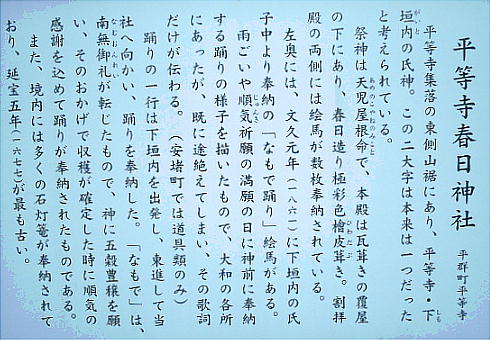 平等寺春日神社　平群町平等寺
平等寺集落の東側山裾にあり、平等寺・下
垣内の氏神。この二大字は本来は一つだった
と考えられている。
祭神は天児屋根命で、本殿は瓦葺きの覆屋
の下にあり、春日造り極彩色檜皮葺き。割拝
殿の両側には絵馬が数枚奉納されている。
左奥には、文久元年(一八六一)に下垣内の氏
子中より奉納の「なもで踊り」絵馬がある。
雨ごいや順気祈願の満願の日に神前に奉納
する踊りの様子を描いたもので、大和の各所
にあったが、既に途絶えてしまい、その歌詞
だけが伝わる。(安堵町では道具類のみ)
踊りの一行は下垣内を出発し、東進して当
社へ向かい、踊りを奉納した。「なもで」は、
南無御礼が転じたもので、神に五穀豊穣を願
い、そのおかげで収穫が確定した時に順気の
感謝を込めて踊りが奉納されたものである。
また、境内には多くの石灯篭が奉納されて
おり、延宝五年(一六七七)が最も古い。